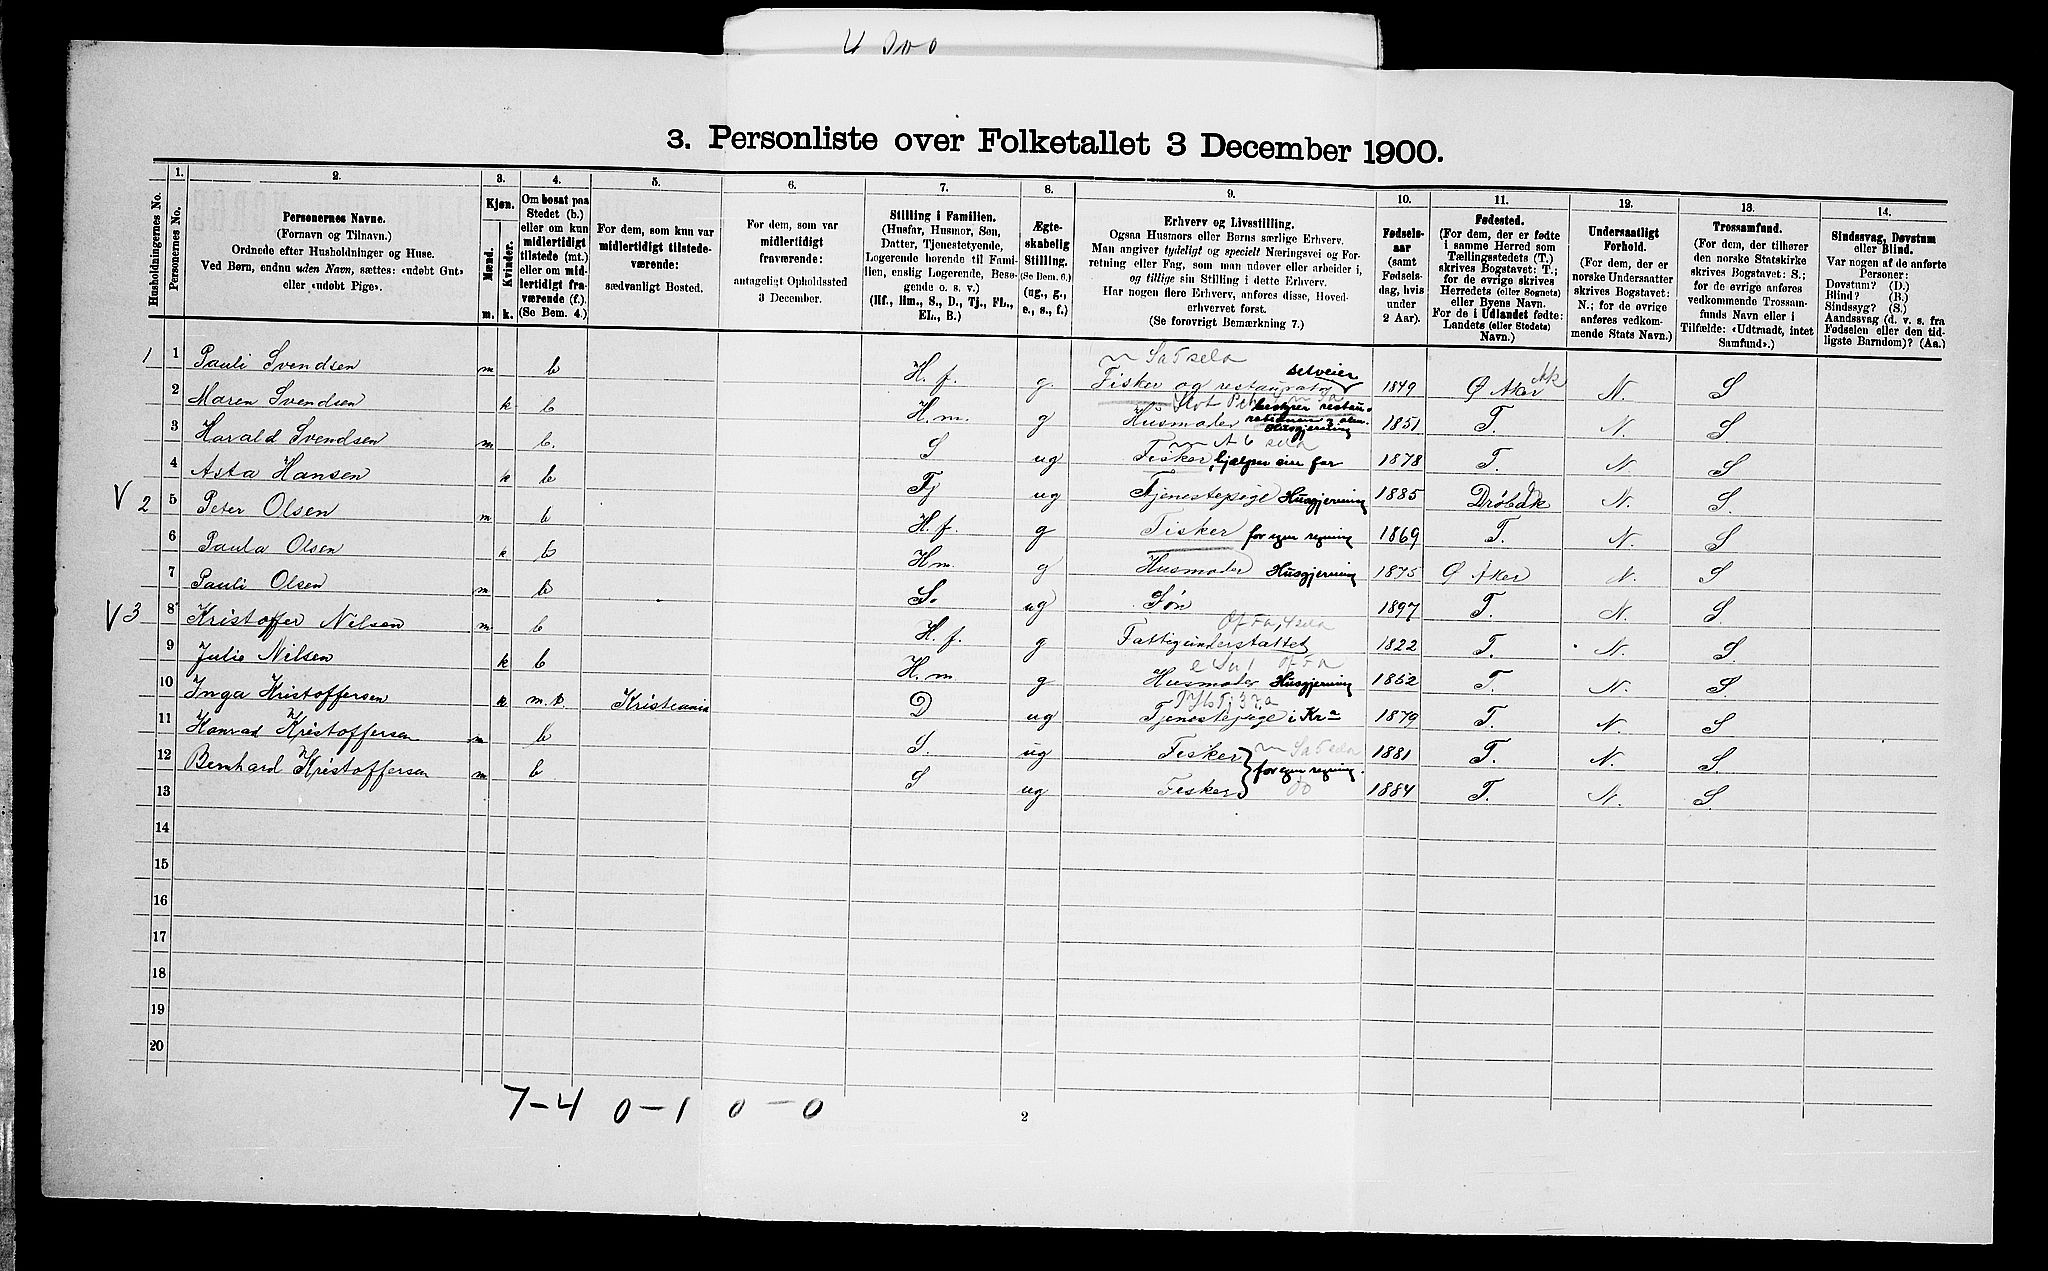 4 200
3. Personliste over Folketallet 3 December 1900.
Husholdningernes No.
1. Personernes No.
2. Personernes Navne. (Fornavn og Tilnavn.) Ordnede efter Husholdninger og Huse. Ved Børn, endnu uden Navn, sættes: «udøbt Gut» eller «udøbt Pige».
3. Kjøn. Mænd. m. Kvinder. k.
4. Om bosat paa Stedet (b.) eller om kun midlertidigt tilstede (mt.) eller om midlertidigt fraværende (f.). (Se Bem. 4.)
5. For dem, som kun var midlertidigt tilstedeværende: sædvanligt Bosted.
6. For dem, som var midlertidigt fraværende: antageligt Opholdssted 3 December.
7. Stilling i Familien. (Husfar, Husmor, Søn, Datter, Tjenestetyende, Logerende hørende til Familien, enslig Logerende, Besøgende o. s. v.) (Hf., Hm., S., D., Tj., FL., EL., B.)
8. Ægteskabelig Stilling. (Se Bem. 6.) (ug., g., e., s., f.)
9. Erhverv og Livsstilling. Ogsaa Husmors eller Børns særlige Erhverv. Man angiver tydeligt og specielt Næringsvei og Forretning eller Fag, som man udøver eller arbeider i, og tillige sin Stilling i dette Erhverv. Har nogen flere Erhverv, anføres disse, Hovederhvervet først. (Se forøvrigt Bemærkning 7.)
10. Fødselsaar (samt Fødselsdag, hvis under 2 Aar).
11. Fødested. (For dem, der er fødte i samme Herred som Tællingsstedets (T.) skrives Bogstavet: T.; for de øvrige skrives Herredets (eller Sognets) eller Byens Navn. For de i Udlandet fødte: Landets (eller Stedets) Navn.)
12. Undersaatligt Forhold. (For dem, der er norske Undersaatter skrives Bogstavet: N.; for de øvrige anføres vedkommende Stats Navn.)
13. Trossamfund. (For dem, der tilhører den norske Statskirke skrives Bogstavet: S.; for de øvrige anføres vedkommende Trossamfunds Navn eller i Tilfælde: «Udtraadt, intet Samfund».)
14. Sindssvag, Døvstum eller Blind. Var nogen af de anførte Personer: Døvstum? (D.) Blind? (B.) Sindssyg? (S.) Aandssvag (d. v. s. fra Fødselen eller den tidligste Barndom)? (Aa.)
1 1 Pauli Svendsen m b H. f. g Fisker og restauratør selveier 1849 Ø Aker Ak N. S
2 Maren Svendsen k b H. m. g Husmoder bestyrer restaurationen og alm. Husgjerning 1851 T. N. S
3 Harald Svendsen m b. S ug Fisker, hjælper sin far 1878 T. N S
4 Asta Hansen k b Tj ug Tjenestepige Husgjerning 1885 Drøbak N. S.
V 2 5 Peter Olsen m b H. f. g Fisker for egen regning 1869 T. N. S
6 Paula Olsen k b Hm. g Husmoder Husgjerning 1875 Ø Aker N. S
7 Pauli Olsen m b S. ug Søn 1897 T. N. S
V 3 8 Kristoffer Nilsen m. b H. f. g Fattigunderstøttet 1822 T. N. S.
9 Julie Nilsen k b H. m g Husmoder Husgjerning 1852 T. N. S
10 Inga Kristoffersen k m. t. Kristiania D ug Tjenestepige i Kra 1879 T. N. S
11 Konrad Kristoffersen m b S. ug Fisker for egen regning. 1881 T. N. S.
12 Bernhard Kristoffersen m b S ug Fisker do 1884 T. N. S.
13
14
15
16
17
18
19
20
7-4 0-1 0-0
2